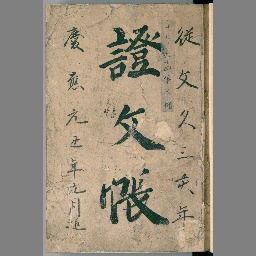 從文久三亥年
證文帳
慶應元丑年九月迄